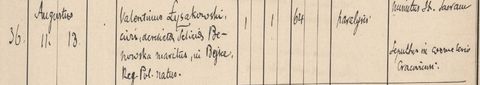 Augustus
36. 11. 13.
Valentinus Łysakowski,
civis, derelicta Felicia Be-
nowska maritus, in Bejsce
Reg. Pol. natus.
1 1 64 paralysis
munitus St. Sacram
Sepultus in coemeterio
Cracoviensi.